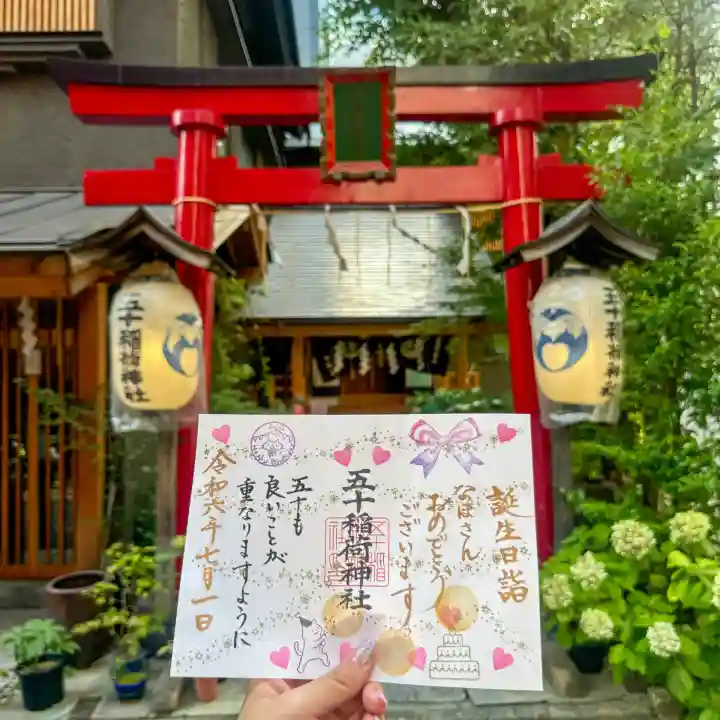 五十稲荷神社
五十稲荷神社
誕生日詣
なほさん
おめでとう
ございます
五十稲荷神社
五十も
良いことが
重なりますように
令和六年七月一日